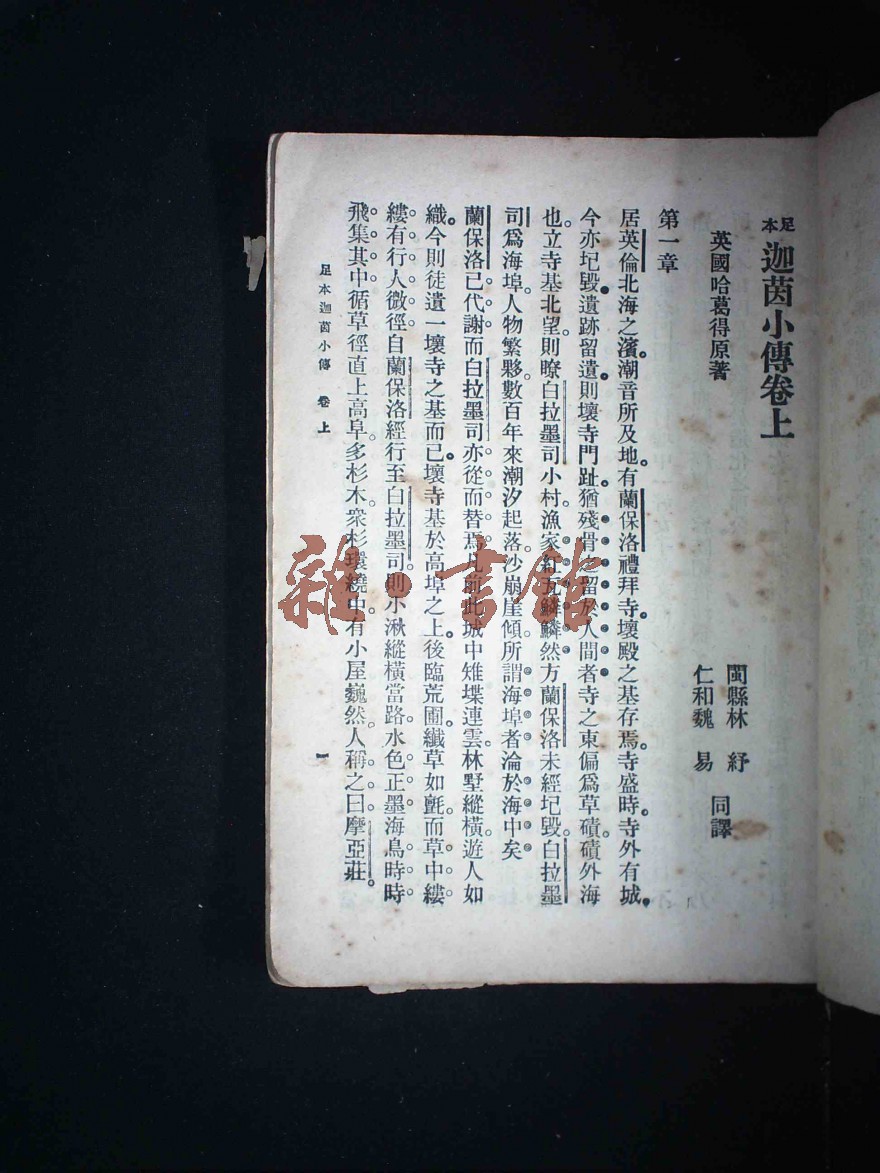 足本 迦茵小傳卷上
英國哈葛得原著
閩縣林 紓
仁和魏 易 同譯
第一章
居英倫北海之濱。潮音所及地。有蘭保洛禮拜寺壞殿之基存焉。寺盛時。寺外有城。
今亦圮毀。遺跡留遺。則壞寺門趾。猶殘骨之留於人間者。寺之東偏爲草磧。磧外海
也。立寺基北望。則瞭白拉墨司小村。漁家紅瓦鱗鱗然。方蘭保洛未經圮毀。白拉墨
司爲海埠。人物繁夥。數百年來。潮汐起落。沙崩崖傾。所謂海埠者。淪於海中矣
蘭保洛已代謝。而白拉墨司亦從而替焉。凡前此城中雉堞連雲。林墅縱橫。遊人如
織。今則徒遺一壞寺之基而已。壞寺基於高埠之上。後臨荒圃。纖草如氈。而草中縷
縷有行人微徑。自蘭保洛經行至白拉墨司。則小湫縱橫當路。水色正墨。海鳥時時
飛集其中。循草徑直上高阜。多杉木。衆杉環繞中。有小屋巍然。人稱之曰摩亞莊。
足本迦茵小傳 卷上
一
雜·書館